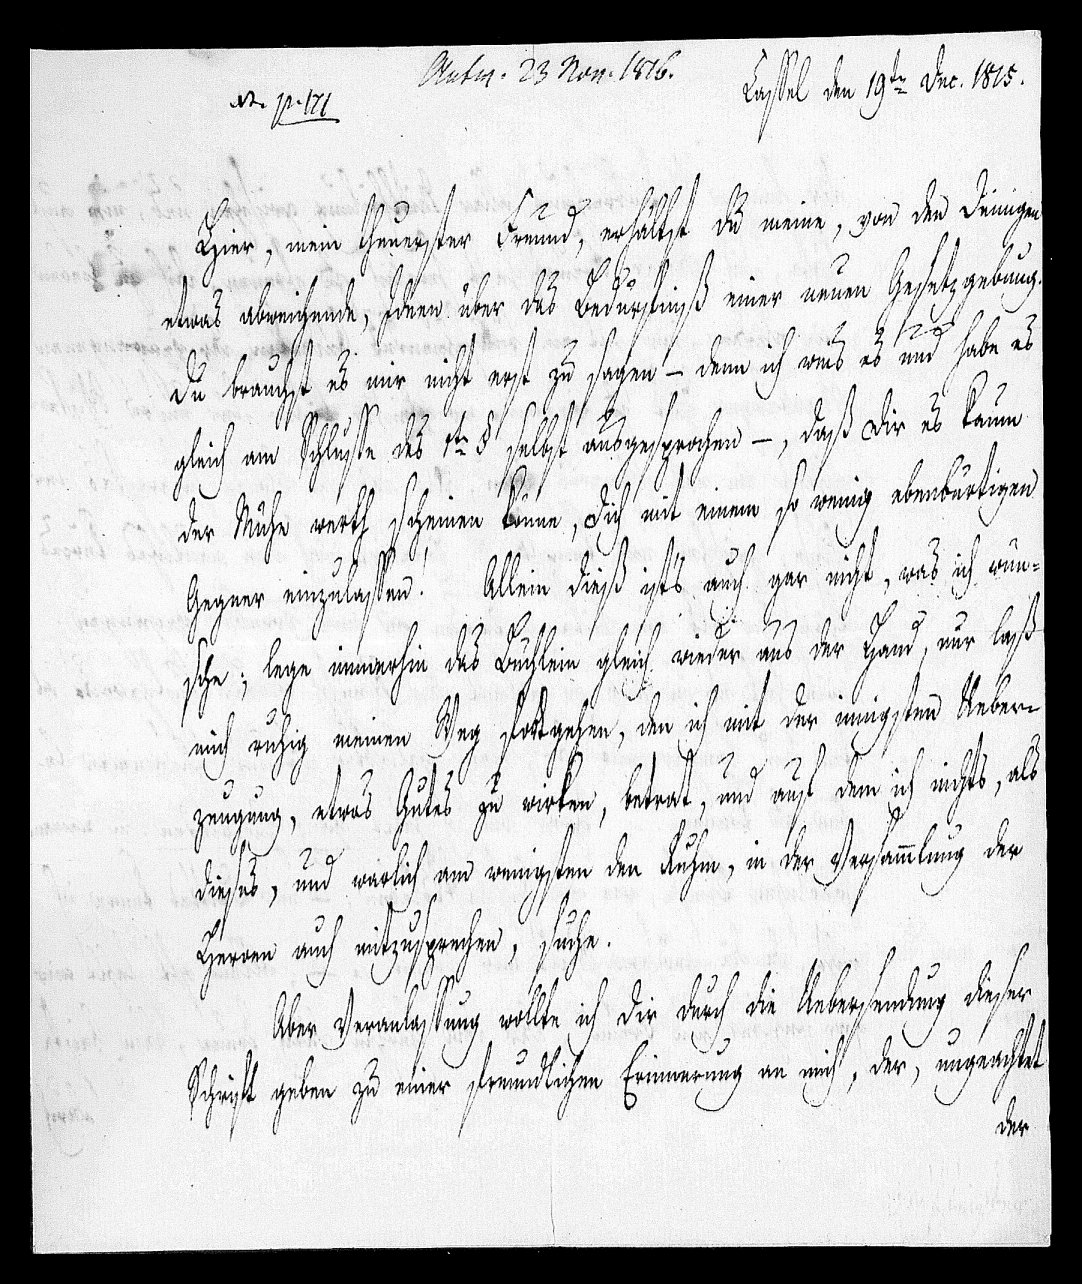 Antw. 23 Nov. 1816.
Cassel den 19ten Dec. 1815.
p. 171
Hier, mein theuerster Freund, erhältst Du meine, von den Deinigen
etwas abweichende, Ideen über das Bedürfniß einer neuen Gesetzgebung.
Du brauchst es mir nicht erst zu sagen – denn ich weis es und habe es
gleich am Schlusse des 1ten § selbst ausgesprochen –, daß Dir es kaum
der Mühe werth scheinen könne, Dich mit einem so wenig ebenbürtigen
Gegner einzulassen. Allein dieß ists auch gar nicht, was ich wün-
sche; lege immerhin das Büchlein gleich wieder aus der Hand, nur laß
mich ruhig meinen Weg fortgehen, den ich mit der innigsten Ueber-
zeugung, etwas Gutes zu wirken, betrat, und auf dem ich nichts, als
dieses, und warlich am wenigsten den Ruhm, in der Versam̄lung der
Herren auch mitzusprechen, suche.
Aber Veranlassung wollte ich Dir durch die Uebersendung dieser
Schrift geben zu einer freundlichen Erinnerung an mich, der, ungeachtet
der